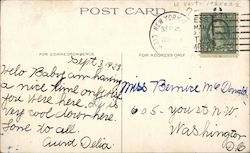 POST CARD
NEW YORK
FOR CORRESPONDENCE
FOR ADDRESS ONLY
Sept 3, 1928
Helo Baby am having
a nice time only wish
you were here. it is
very cool down here.
love to all.
Aunt Delia
Miss Bernice McDonald
605 - you st N.W.
Washington
D.C.